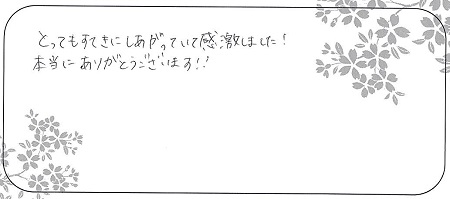 とってもすてきにしあがっていて感激しました!
本当にありがとうございます!!